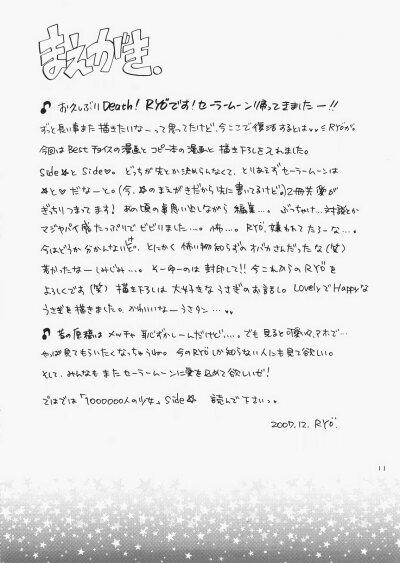 まえがき。
♪ お久しぶりDeath! RYÖです!セーラームーン帰ってきましたー!!
ずっと長い事また描きたいなーって思ってたけど、今ここで復活するとは。。ミRYÖが。
今回はBestチョイスの漫画とコピー本の漫画と描き下ろしを入れました。
Side☆とSide♡。どっちが先とか決めらんなくて、とりあえずセーラームーンは
☆と♡だなーと。(今、☆のまえがきだから先に書いてるけど)2冊共
ぎっちりつまってます!あの頃の事思い出しながら編集…。ぶっちゃけ…対談とか
マジヤバイ感たっぷりでビビりました…。怖…。RYÖ、嫌われてたろーな…。
今はどうか分かんないけど、とにかく怖い物知らずのオバカさんだったな(笑)
若かったなーしみじみ…。そーゆーのは封印して!!今これからのRYÖを
よろしくです(笑)描き下ろしは大好きなうさぎのお話し。LovelyでHappyな
うさぎを描きました。かわいいなーうさタン…。
♪ 昔の原稿はメッチャ恥ずかしーんだけど…。でも見ると可愛い。アホで…
やっぱ見てもらいたくなっちゃうわ。今のRYÖしか知らない人にも見て欲しい。
そして、みんなもまたセーラームーンに愛を込めて欲しいぜ!
ではでは「1000000人の少女」Side☆ 読んで下さいっ。
2007.12. RYÖ.
11